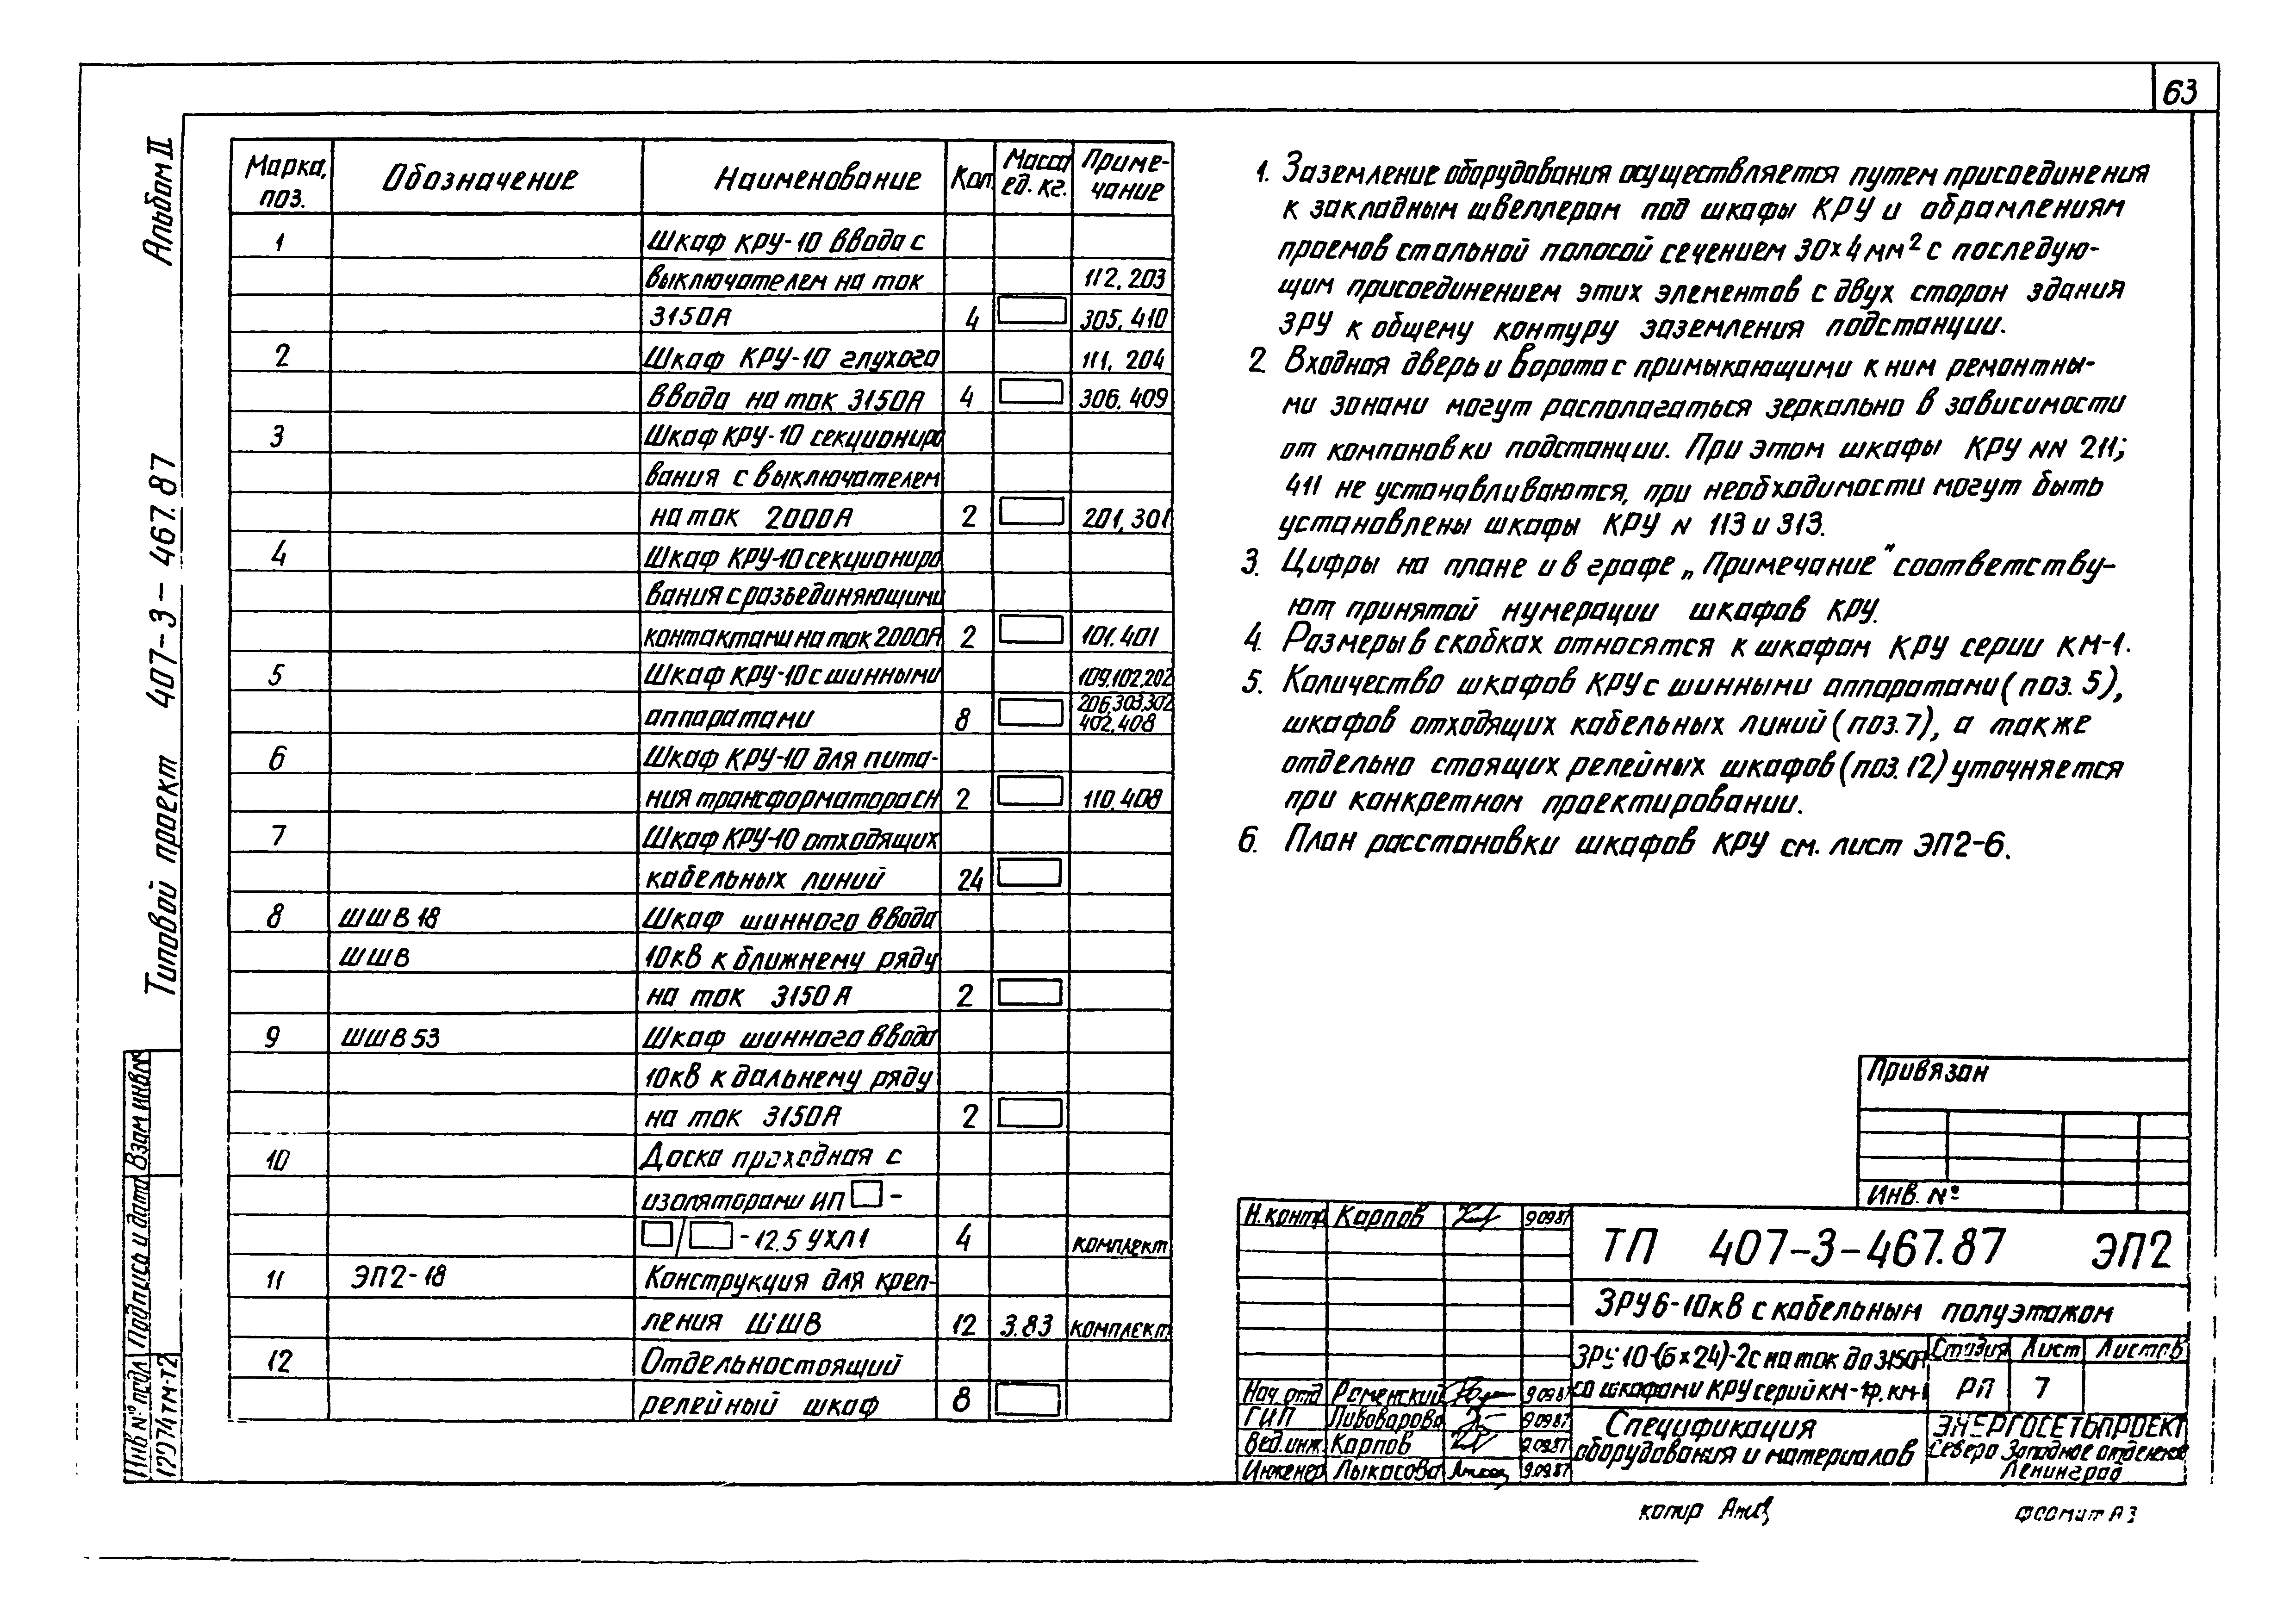 63
Альбом II
Типовой проект 407-3-467.87
Марка, поз. Обозначение Наименование Кол. Масса ед. кг. Приме-чание
1 Шкаф КРУ-10 ввода с
выключателем на ток 112, 203
3150А 4 305, 410
2 Шкаф КРУ-10 глухого 111, 204
ввода на ток 3150А 4 306, 409
3 Шкаф КРУ-10 секциониро
вания с выключателем
на ток 2000А 2 201, 301
4 Шкаф КРУ-10 секциониро
вания с разъединяющими
контактами на ток 2000А 2 101, 401
5 Шкаф КРУ-10 с шинными 109,102,202
206,303,302
аппаратами 8 402,408
6 Шкаф КРУ-10 для пита-
ния трансформатора сн 2 110,408
7 Шкаф КРУ-10 отходящих
кабельных линий 24
8 ШШВ 18 Шкаф шинного ввода
ШШВ 10кВ к ближнему ряду
на ток 3150А 2
9 ШШВ 53 Шкаф шинного ввода
10кВ к дальнему ряду
на ток 3150А 2
10 Доска проходная с
изоляторами ИП -
/ -12.5 УХЛ1 4 комплект
11 ЭП2-18 Конструкция для креп-
ления ШШВ 12 3.83 комплект
12 Отдельностоящий
релейный шкаф 8
1. Заземление оборудования осуществляется путем присоединения
к закладным швеллерам под шкафы КРУ и обрамлениям
проемов стальной полосой сечением 30×4 мм² с последую-
щим присоединением этих элементов с двух сторон здания
ЗРУ к общему контуру заземления подстанции.
2. Входная дверь и ворота с примыкающими к ним ремонтны-
ми зонами могут располагаться зеркально в зависимости
от компановки подстанции. При этом шкафы КРУ NN 211;
411 не устанавливаются, при необходимости могут быть
установлены шкафы КРУ N 113 и 313.
3. Цифры на плане и в графе „Примечание" соответству-
ют принятой нумерации шкафов КРУ.
4. Размеры в скобках относятся к шкафам КРУ серии КМ-1.
5. Количество шкафов КРУ с шинными аппаратами (поз. 5),
шкафов отходящих кабельных линий (поз.7), а также
отдельно стоящих релейных шкафов (поз.12) уточняется
при конкретном проектировании.
6. План расстановки шкафов КРУ см. лист ЭП2-6.
Привязан
Инв. №
Н.контр Карпов 9.09.87
ТП 407-3-467.87 ЭП2
ЗРУ 6-10кВ с кабельным полуэтажом
ЗРУ 10-(6×24)-2с на ток до 3150А
со шкафами КРУ серий КМ-1Ф, КМ-1
Стадия Лист Листов
РП 7
Нач.отд Роменский 9.09.87
ГИП Пивоварова 9.09.87
Вед.инж. Карпов 9.09.87
Инженер Лыкасова 9.09.87
Спецификация
оборудования и материалов
ЭНЕРГОСЕТЬПРОЕКТ
Северо Западное отделение
Ленинград
Инв № подл Подпись и дата Взам инв№
12974тм-т2
копир
формат А3